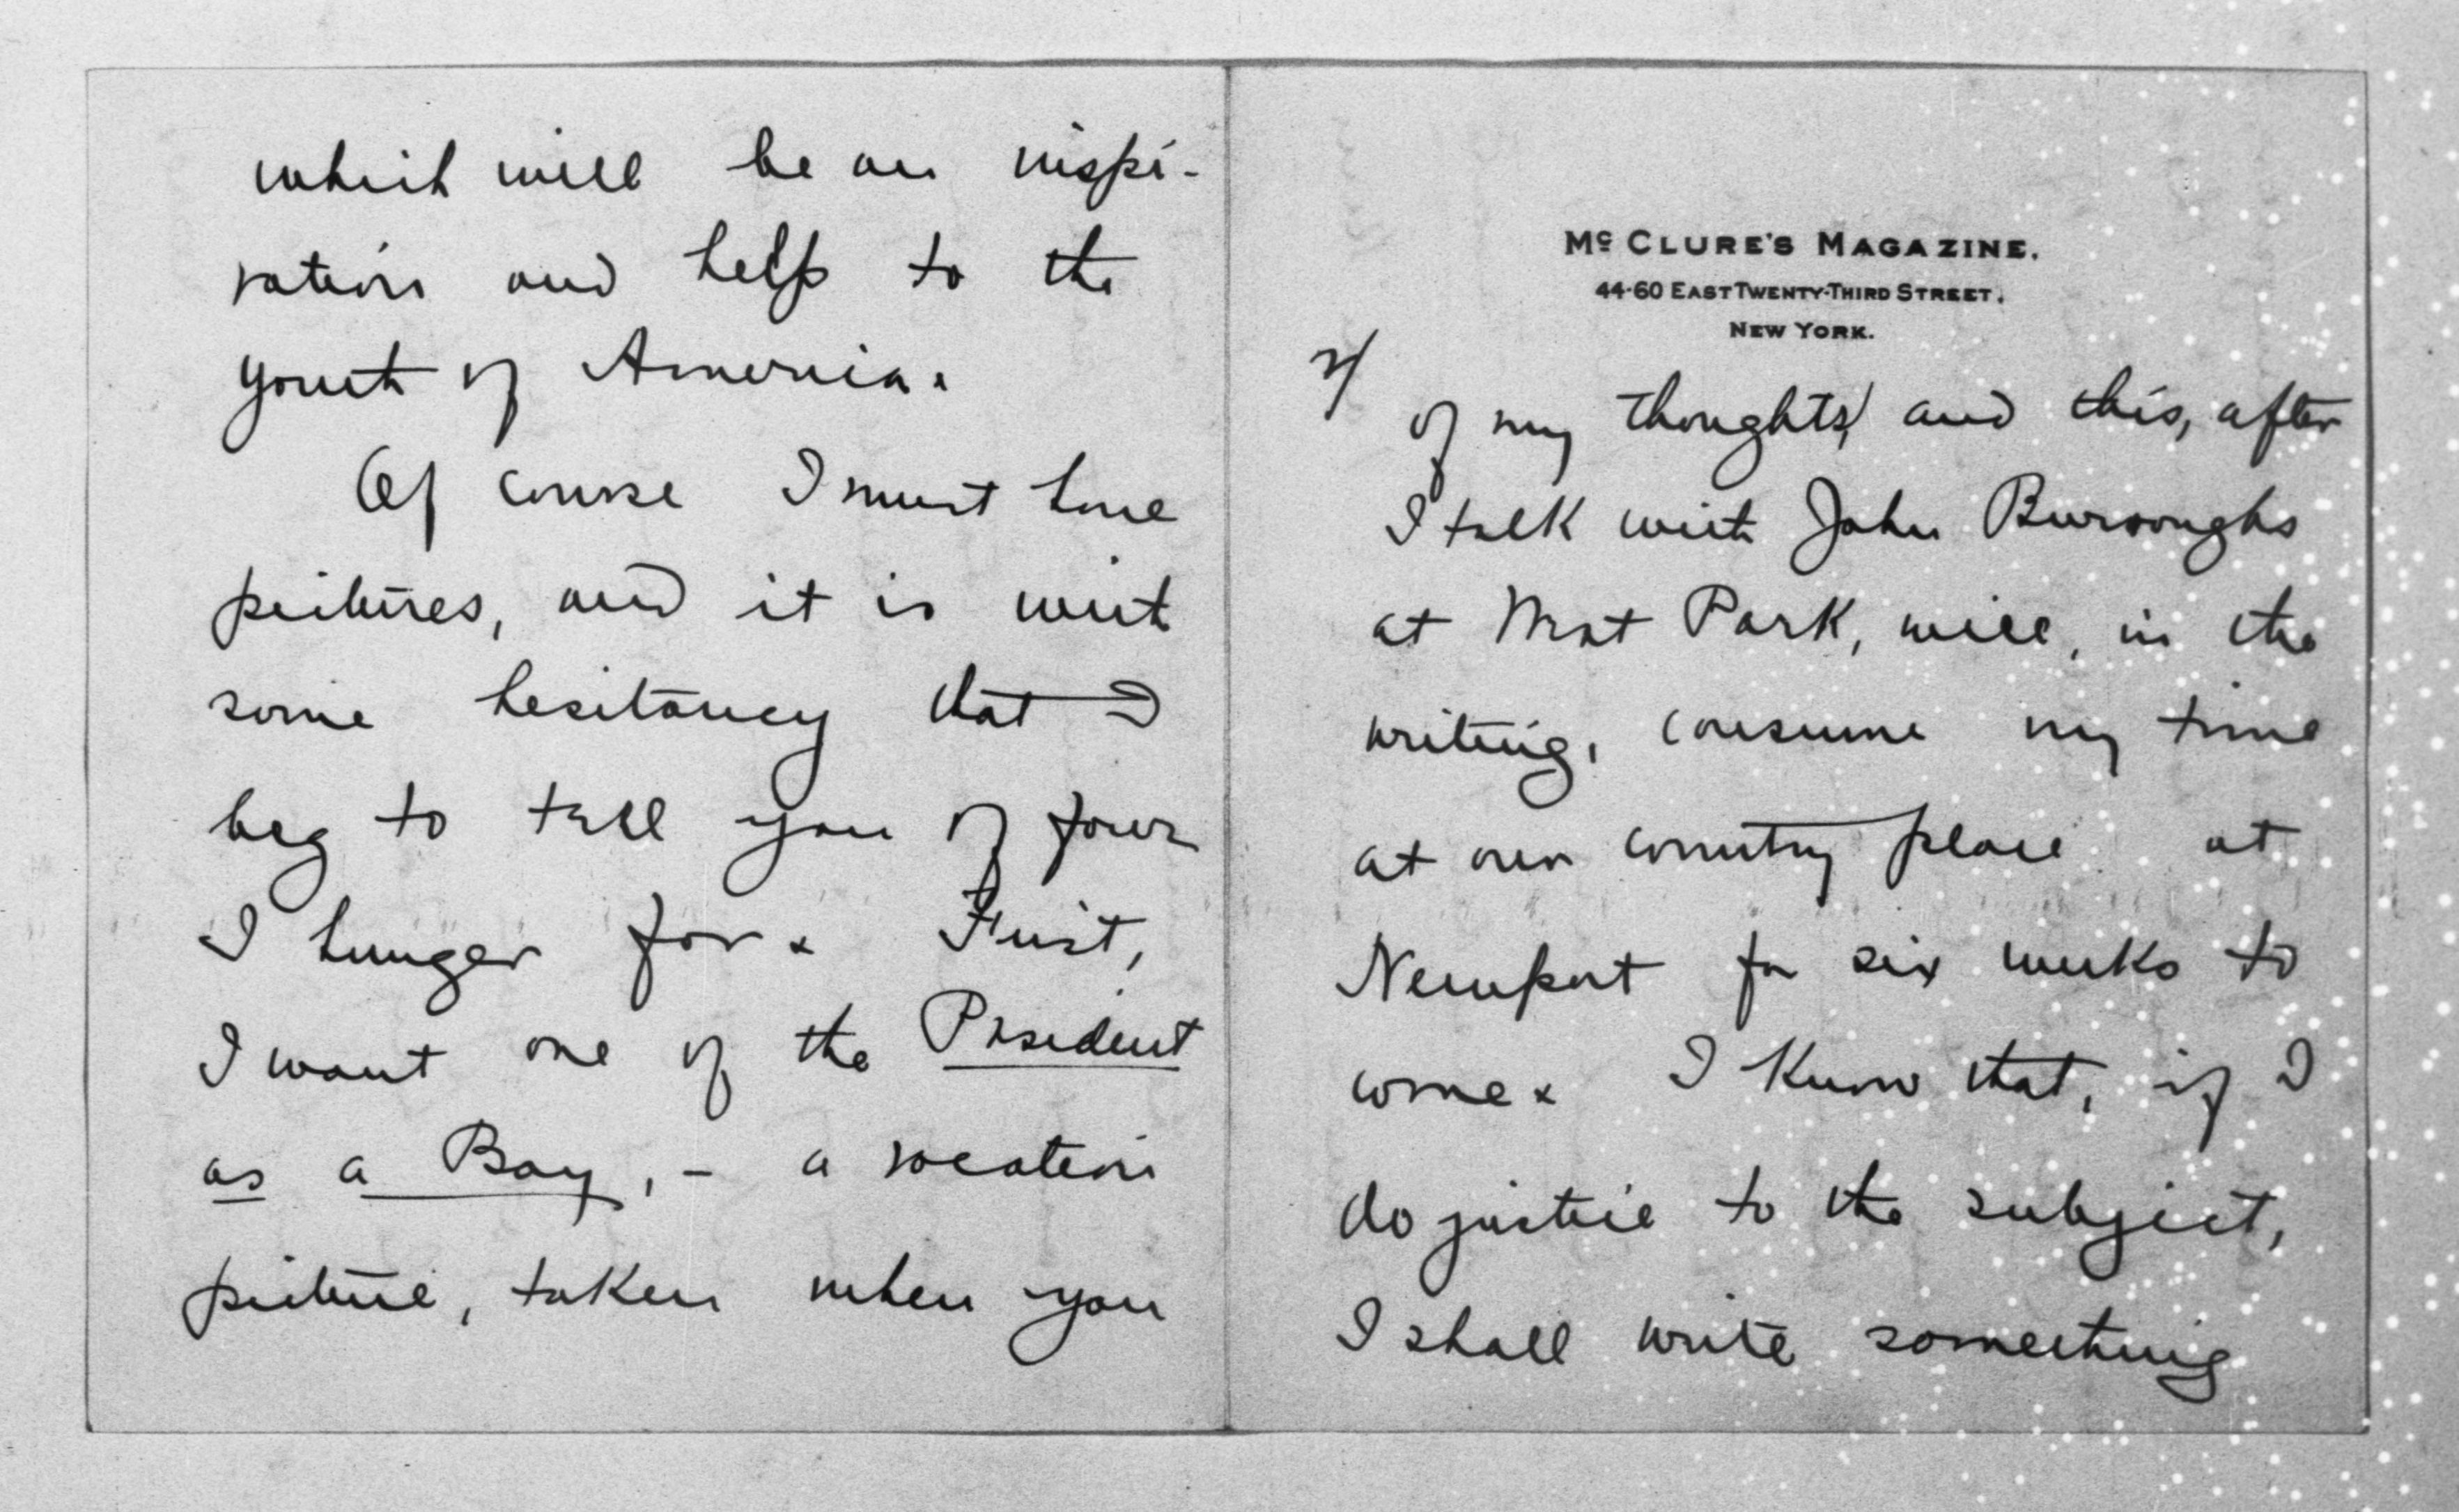 McCLURE'S MAGAZINE.
44-60 EAST TWENTY-THIRD STREET.
NEW YORK.
2/
of my thoughts, and this, after
I talk with John Burroughs
at West Park, will, in the
writing, consume my time
at our country place at
Newport for six weeks to
come x I know that, if I
do justice to the subject,
I shall write something
which will be an inspi-
ration and help to the
youth of America.
Of course I must have
pictures, and it is with
some hesitancy that I
beg to tell you of four
I hunger for x First,
I want one of the President
as a Boy, - a vacation
picture, taken when you